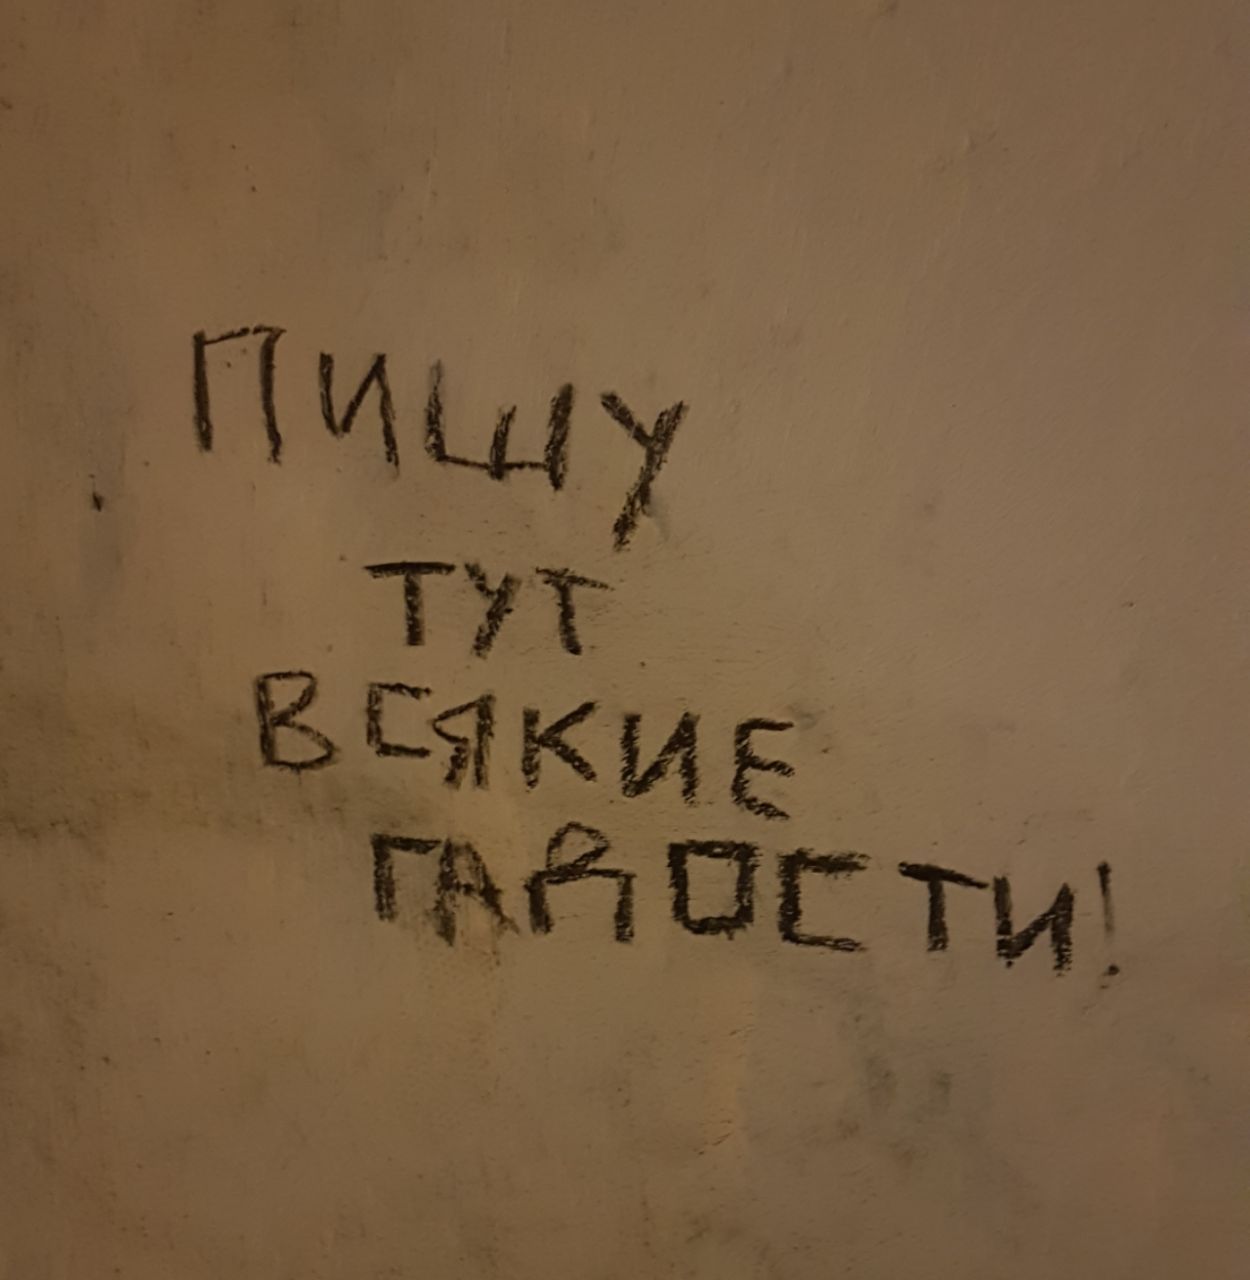 ПИШУ
ТУТ
ВСЯКИЕ
ГАДОСТИ!